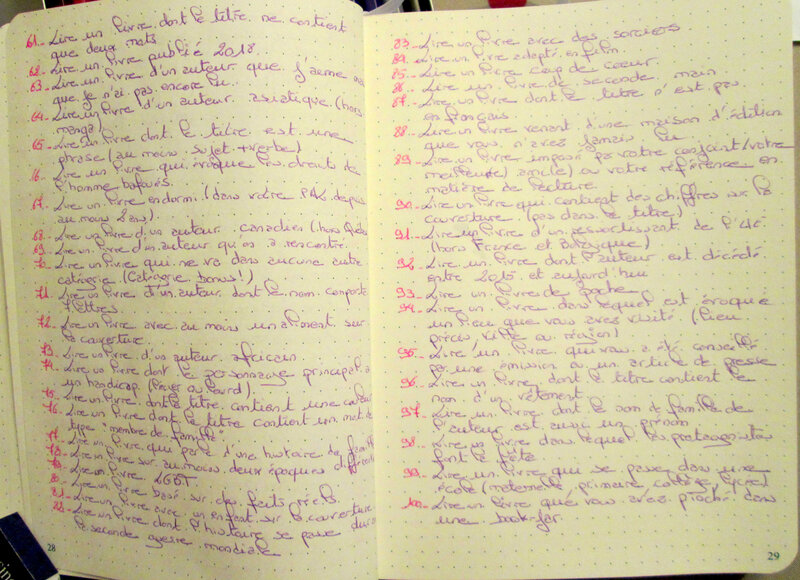 61_ Lire un livre dont le titre ne contient
que deux mots
62_ Lire un livre publié 2018
63_ Lire un livre d'un auteur que j'aime mais
que je n'ai pas encore lu.
64_ Lire un livre d'un auteur asiatique (hors
manga)
65_ Lire un livre dont le titre est une
phrase (au moins sujet + verbe)
66_ Lire un livre qui évoque les droits de
l'homme bafoués.
67_ Lire un livre endormi (dans votre PAL depuis
au moins 2 ans).
68_ Lire un livre d'un auteur canadien (hors Québec
69_ Lire un livre d'un auteur qu'on a rencontré.
70_ Lire un livre qui ne va dans aucune autre
catégorie (Catégorie bonus!)
71_ Lire un livre d'un auteur dont le nom comporte
lettres.
72_ Lire un livre avec au moins un aliment sur
la couverture
73_ Lire un livre d'un auteur africain.
74_ Lire un livre dont le personnage principal a
un handicap. (léger ou lourd).
75_ Lire un livre dont le titre contient une couleur
76_ Lire un livre dont le titre contient un mot de
type "membre de famille"
77_ Lire un livre qui parle d'une histoire de famille
78_ Lire un livre sur au moins deux époques différentes
79_ Lire un livre LGBT
80_ Lire un livre basé sur des faits réels.
81_ Lire un livre avec un enfant sur la couverture
82_ Lire un livre dont l'histoire se passe durant
la seconde guerre mondiale
28
83_ Lire un livre avec des sorciers
84_ Lire un livre adapté en film.
85_ Lire un livre coup de coeur.
86_ Lire un livre de seconde main
87_ Lire un livre dont le titre n'est pas
en français
88_ Lire un livre venant d'une maison d'édition
que vous n'avez jamais lu
89_ Lire un livre imposé par votre conjoint/votre
meilleur(e) ami(e) ou votre référence en
matière de lecture
90_ Lire un livre qui contient des chiffres sur la
couverture (pas dans le titre)
91_ Lire un livre d'un ressortissant de l'UE
(hors France et Belgique)
92_ Lire un livre dont l'auteur est décédé
entre 2015 et aujourd'hui
93_ Lire un livre de poche
94_ Lire un livre dans lequel est évoqué
un lieu que vous avez visité (lieu
précis, ville ou région)
95_ Lire un livre qui vous a été conseillé
par une émission ou un article de presse
96_ Lire un livre dont le titre contient le
nom d'un vêtement
97_ Lire un livre dont le nom de famille de
l'auteur est aussi un prénom
98_ Lire un livre dans lequel les protagonistes
font la fête
99_ Lire un livre qui se passe dans une
école (maternelle, primaire, collège, lycée)
100_ Lire un livre que vous avez pioché dans
une book-jar.
29